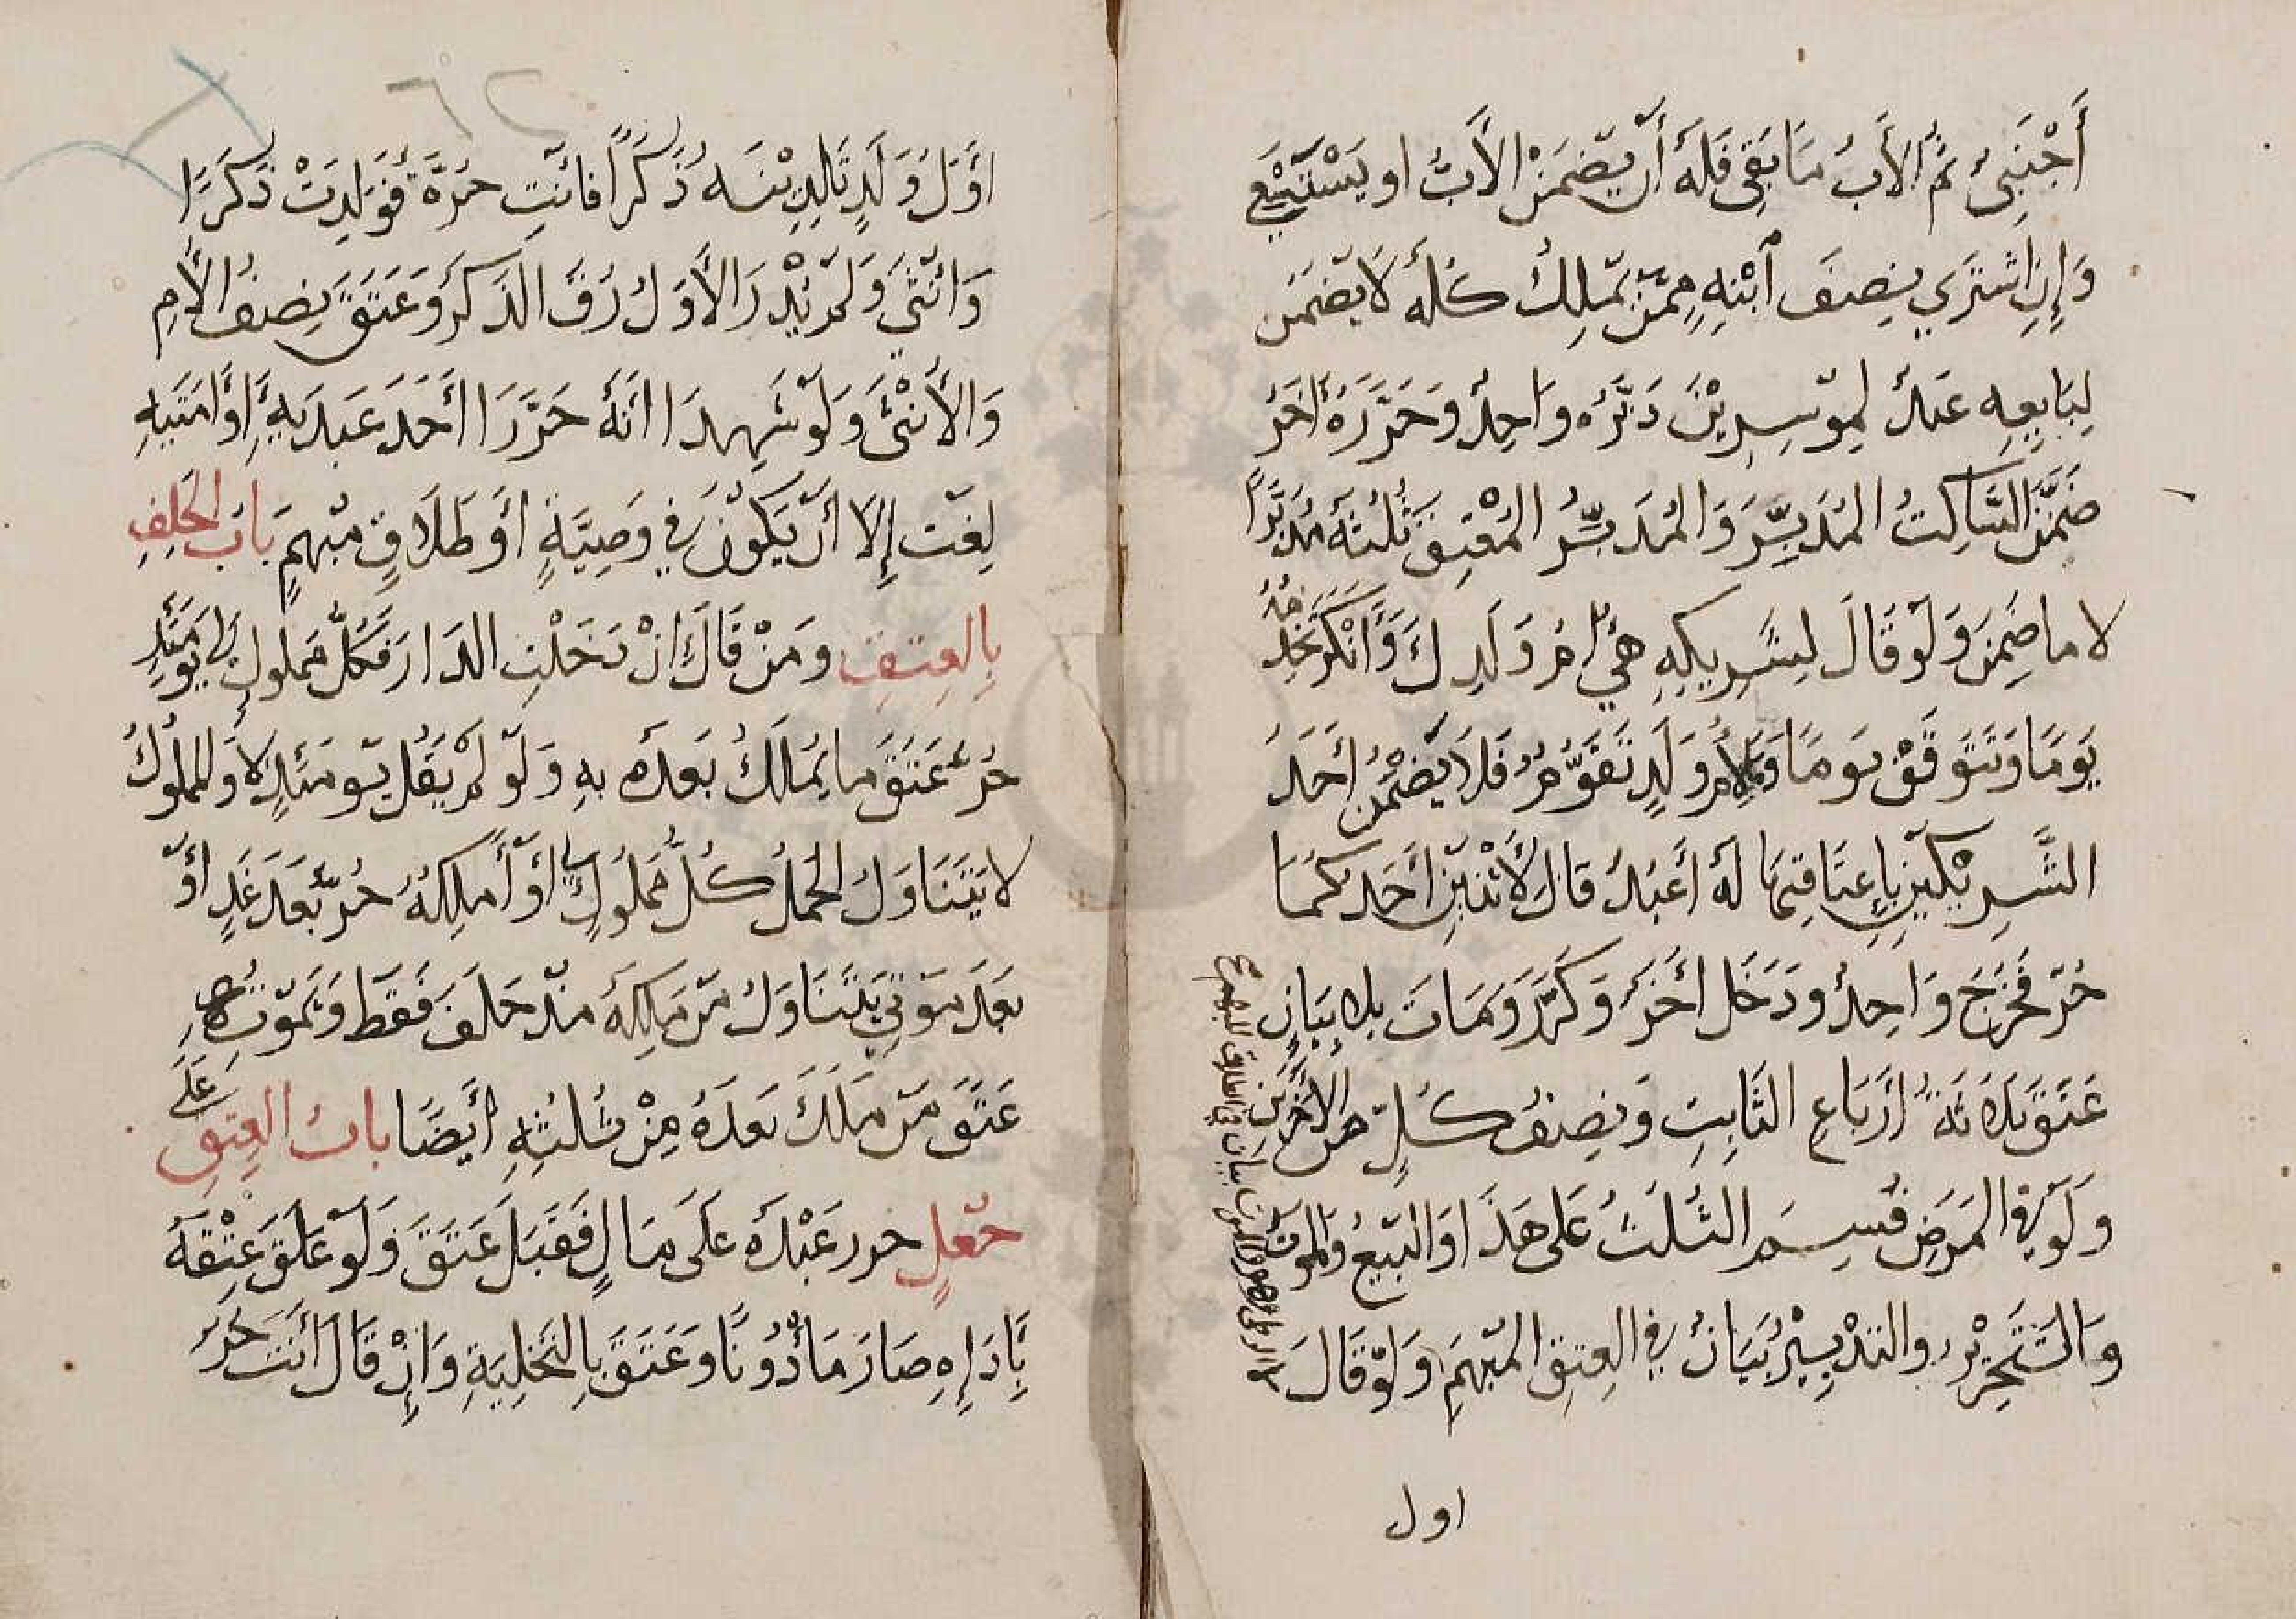 أجنبي ثم الأب ما بقي فله أن يضمن الأب او يستسعي
وإن اشتري نصف ابنه ممن يملك كله لا يضمن
لبايعه عبد لموسرين دبره واحد وحرره أخر
ضمن الساكت المدبر والمدبر المعتق ثلثه مدبرا
لا ما ضمن ولو قال لشريكه هي أم ولدك وأنكر تخدمه
يوما وتتوقف يوما وما لام ولد تقوم فلا يضمن أحد
الشريكين بإعتاقها له أعبد قال لاثنين أحدكما
حر فخرج واحد ودخل أخر وكرر ومات بلا بيان
عتق ثلاثة أرباع الثابت ونصف كل من الأخرين
ولو في المرض قسم الثلث على هذا والبيع والموت
والتحرير والتدبير بيان في العتق المبهم ولو قال
اول
اول ولد تلدينه ذكرا فانت حرة فولدت ذكرا
وانثى ولم يدر الأول رق الذكر وعتق نصف الأم
والأنثى ولو شهدا انه حرر أحد عبديه او امتيه
لغت إلا أن يكون في وصية أو طلاق مبهم باب الحلف
بالعتق ومن قال ان دخلت الدار فكل مملوك لي يومئذ
حر عتق ما يملك بعده به ولو لم يقل يومئذ لا والمملوك
لا يتناول الحمل كل مملوك لي او أملكه حر بعد غد أو
بعد موتي يتناول من ملكه منذ حلف فقط وبموته
عتق من ملك بعده من ثلثه أيضا باب العتق على
جعل حرر عبده على مال فقبل عتق ولو علق عتقه
بأداءه صار مأذونا وعتق بالتخلية وإن قال أنت حر